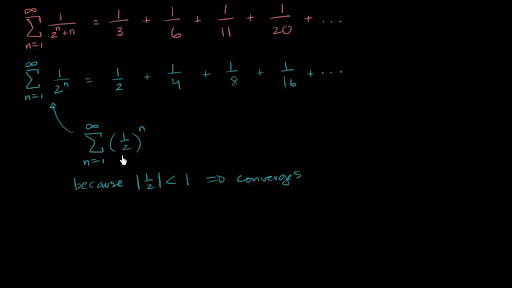 ∞ ∑ n=1 1/(2^n+n) = 1/3 + 1/6 + 1/11 + 1/20 + ···
∞ ∑ n=1 1/2^n = 1/2 + 1/4 + 1/8 + 1/16 + ···
∞ ∑ n=1 (1/2)^n
because |1/2| < 1 ⇒ converges